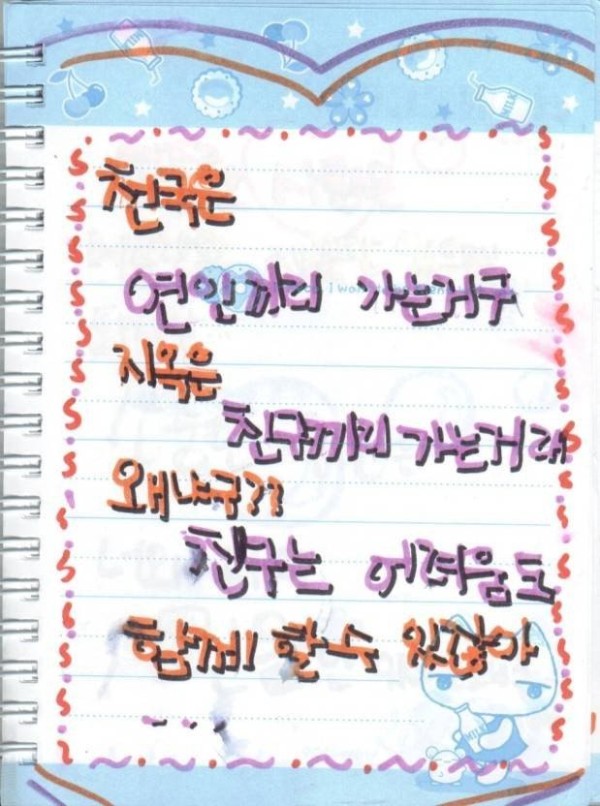 천국은
연인끼리 가는거구
지옥은
친구끼리 가는거래
왜냐구??
친구는 어려움도
함께 할 수 있잖아
...
MILK